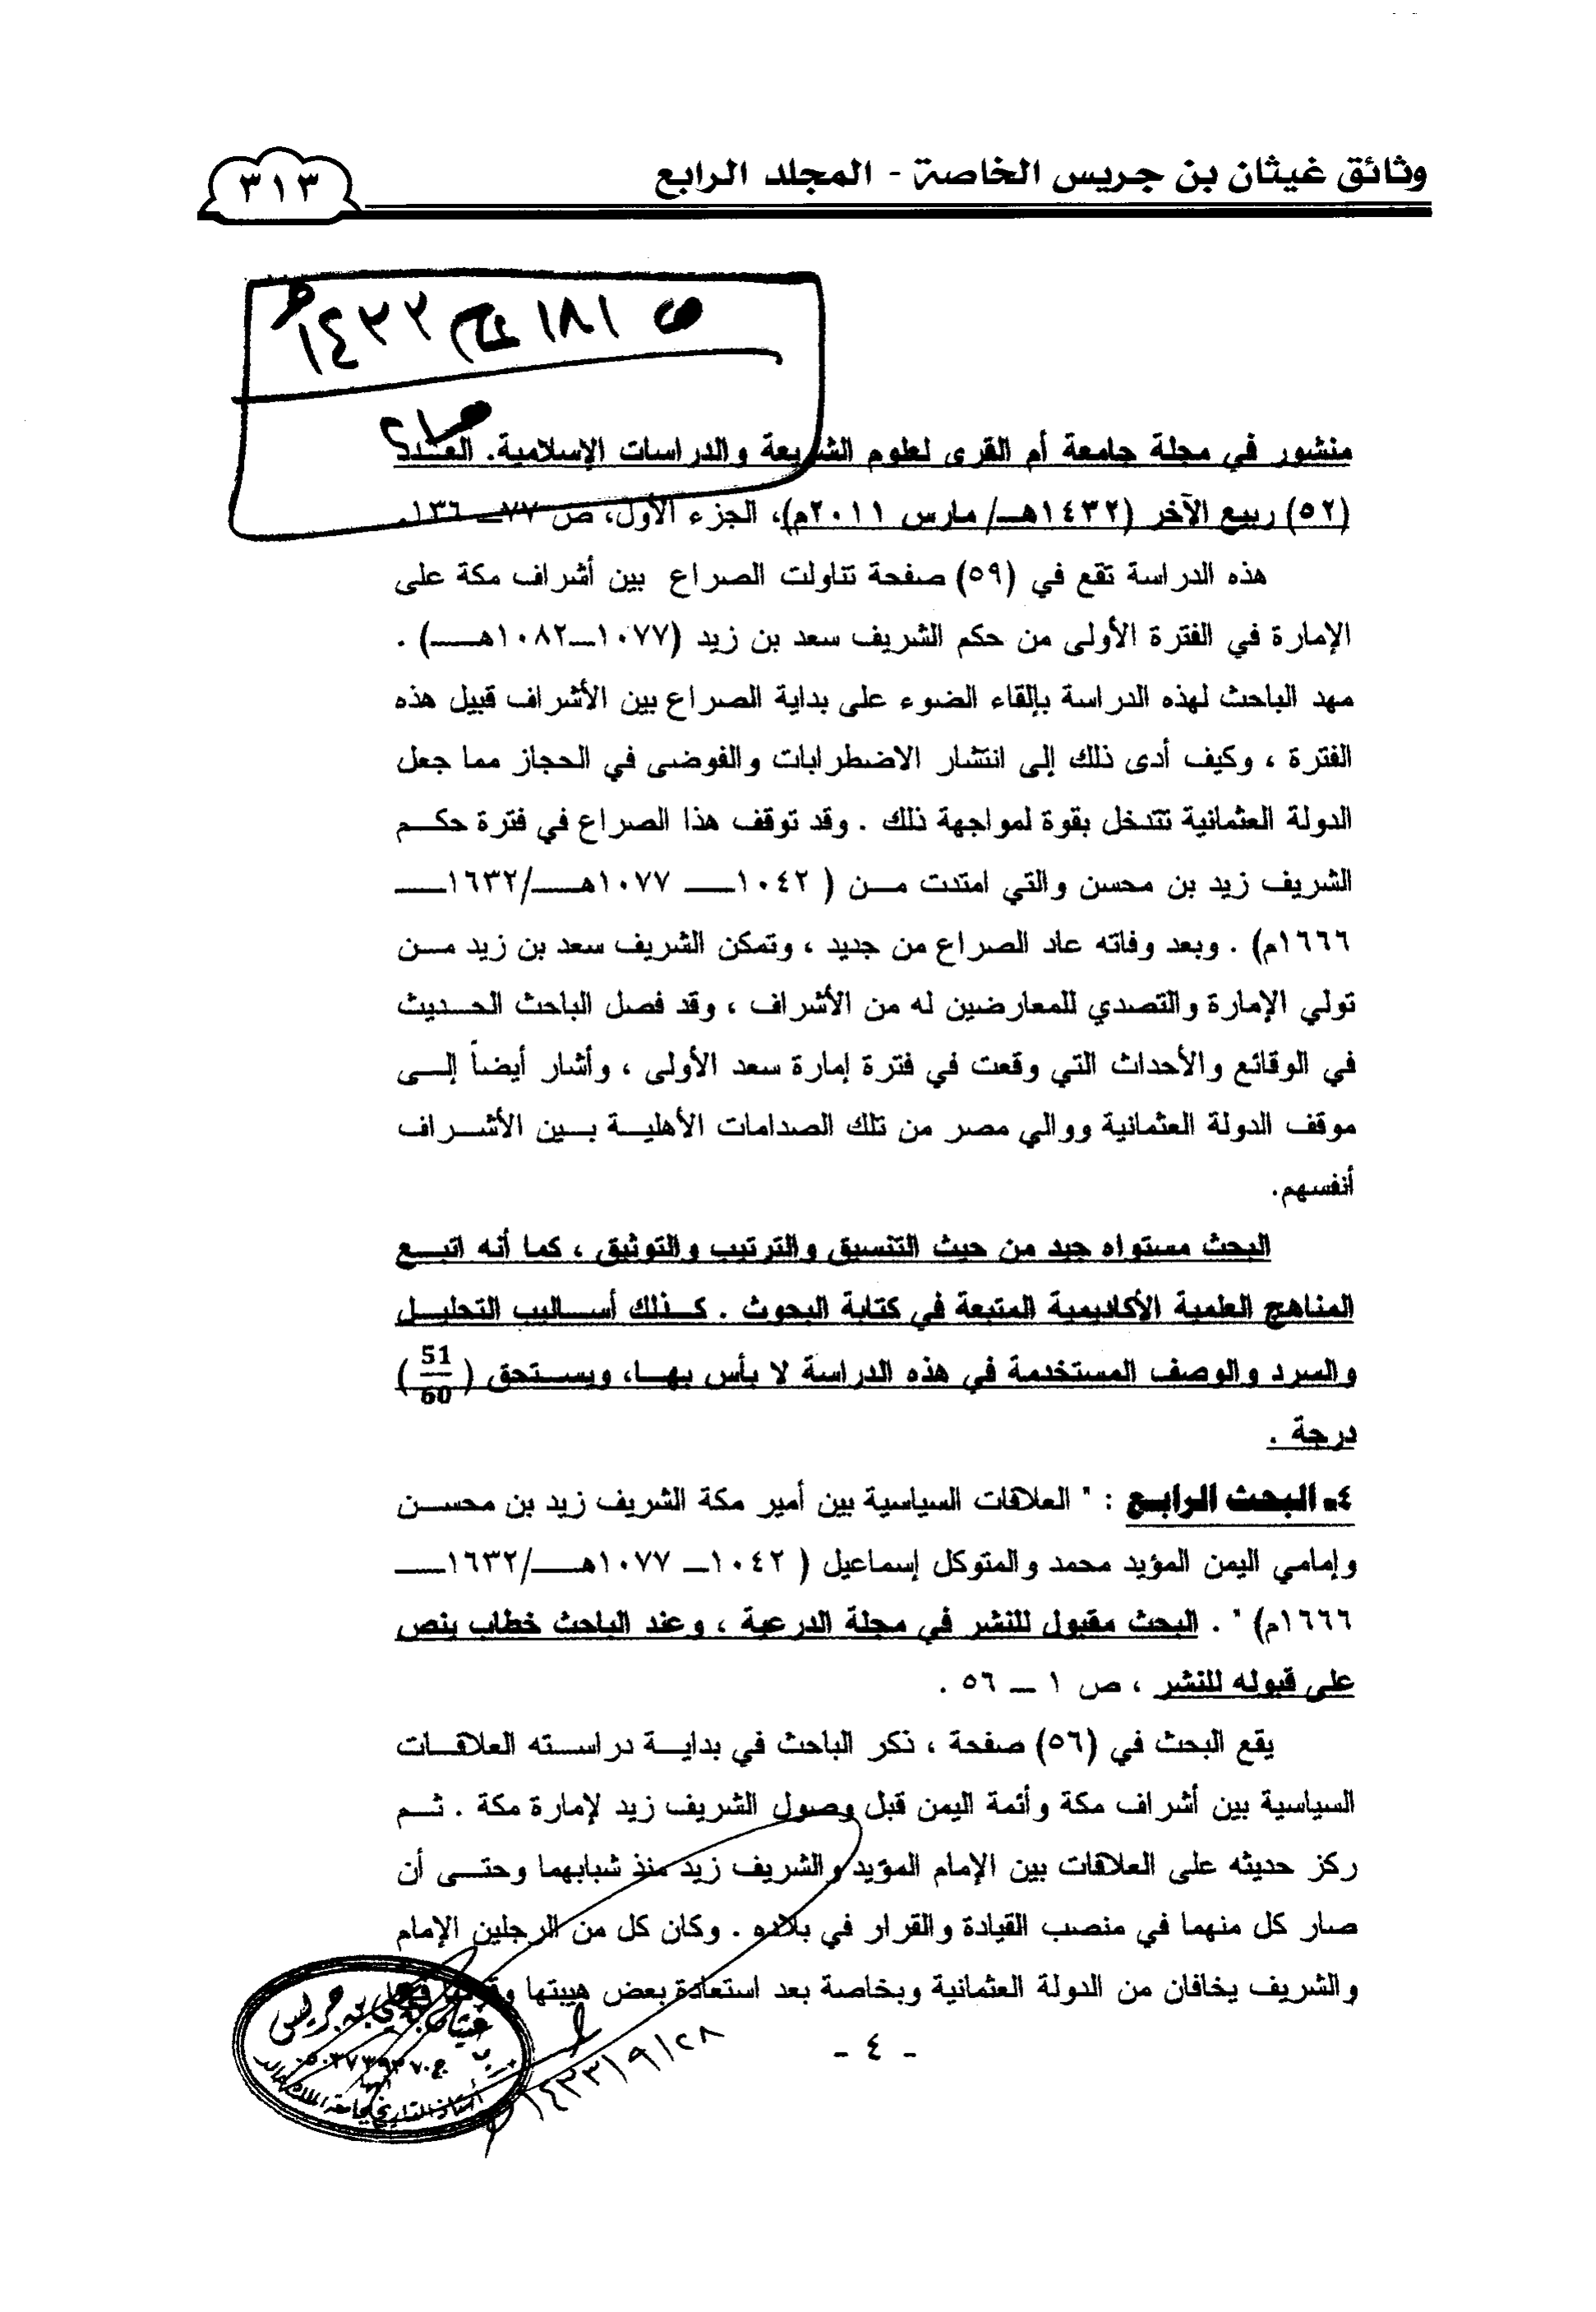 وثائق غيثان بن جريس الخاصة - المجلد الرابع
٣١٣
١٨١
١٤٣٣هـ
منشور في مجلة جامعة أم القرى لعلوم الشريعة والدراسات الإسلامية. العدد
(٥٢) ربيع الآخر (١٤٣٢هـ/ مارس ٢٠١١م)، الجزء الأول، ص ٧٧ـ ١٣٦.
هذه الدراسة تقع في (٥٩) صفحة تناولت الصراع بين أشراف مكة على
الإمارة في الفترة الأولى من حكم الشريف سعد بن زيد (١٠٧٧ـ١٠٨٢هـ) .
مهد الباحث لهذه الدراسة بإلقاء الضوء على بداية الصراع بين الأشراف قبيل هذه
الفترة ، وكيف أدى ذلك إلى انتشار الاضطرابات والفوضى في الحجاز مما جعل
الدولة العثمانية تتدخل بقوة لمواجهة ذلك . وقد توقف هذا الصراع في فترة حكم
الشريف زيد بن محسن والتي امتدت من ( ١٠٤٢ـ ١٠٧٧هـ/١٦٣٢ـ
١٦٦٦م) . وبعد وفاته عاد الصراع من جديد ، وتمكن الشريف سعد بن زيد من
تولي الإمارة والتصدي للمعارضين له من الأشراف ، وقد فصل الباحث الحديث
في الوقائع والأحداث التي وقعت في فترة إمارة سعد الأولى ، وأشار أيضاً إلى
موقف الدولة العثمانية ووالي مصر من تلك الصدامات الأهلية بين الأشراف
أنفسهم.
البحث مستواه جيد من حيث التنسيق والترتيب والتوثيق ، كما أنه اتبع
المناهج العلمية الأكاديمية المتبعة في كتابة البحوث . كذلك أساليب التحليل
والسرد والوصف المستخدمة في هذه الدراسة لا بأس بها، ويستحق (51/60)
درجة .
٤ـ البحث الرابع : " العلاقات السياسية بين أمير مكة الشريف زيد بن محسن
وإمامي اليمن المؤيد محمد والمتوكل إسماعيل ( ١٠٤٢ـ ١٠٧٧هـ/١٦٣٢ـ
١٦٦٦م) " . البحث مقبول للنشر في مجلة الدرعية ، وعند الباحث خطاب ينص
على قبوله للنشر ، ص ١ ـ ٥٦ .
يقع البحث في (٥٦) صفحة ، ذكر الباحث في بداية دراسته العلاقات
السياسية بين أشراف مكة وأئمة اليمن قبل وصول الشريف زيد لإمارة مكة . ثم
ركز حديثه على العلاقات بين الإمام المؤيد والشريف زيد منذ شبابهما وحتى أن
صار كل منهما في منصب القيادة والقرار في بلاده . وكان كل من الرجلين الإمام
والشريف يخافان من الدولة العثمانية وبخاصة بعد استعادة بعض هيبتها
- ٤ -
١٤٣٣/٩/٢٨